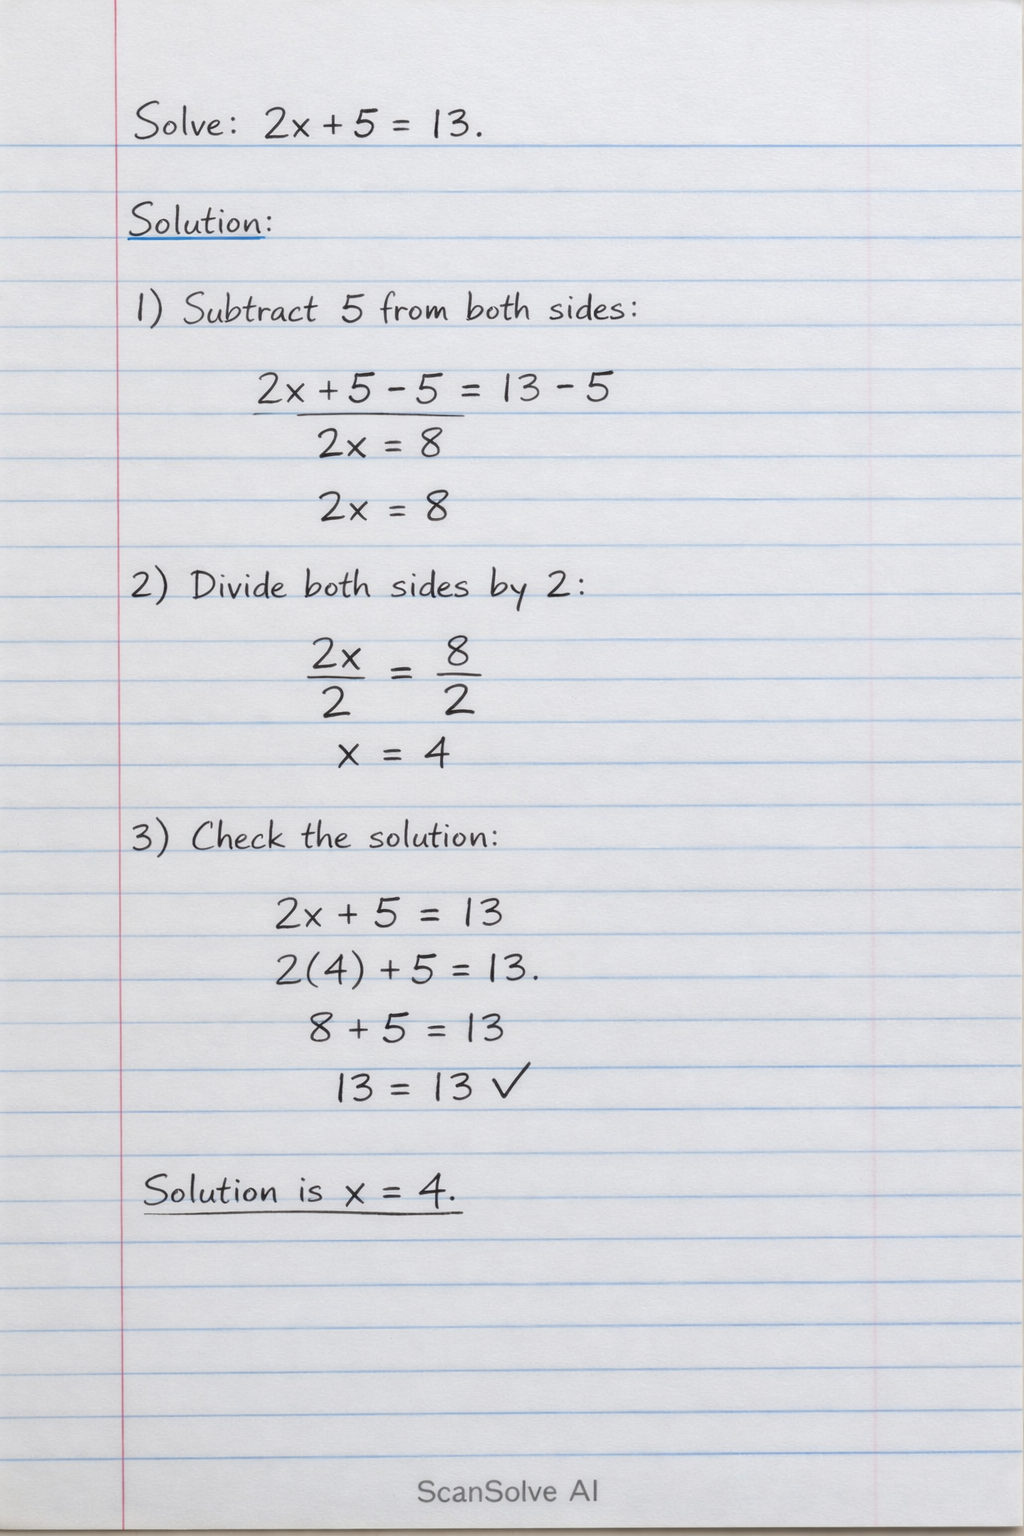 Solve: 2x + 5 = 13.
Solution:
1) Subtract 5 from both sides:
2x + 5 - 5 = 13 - 5
2x = 8
2x = 8
2) Divide both sides by 2:
2x/2 = 8/2
x = 4
3) Check the solution:
2x + 5 = 13
2(4) + 5 = 13.
8 + 5 = 13
13 = 13 ✓
Solution is x = 4.
ScanSolve AI